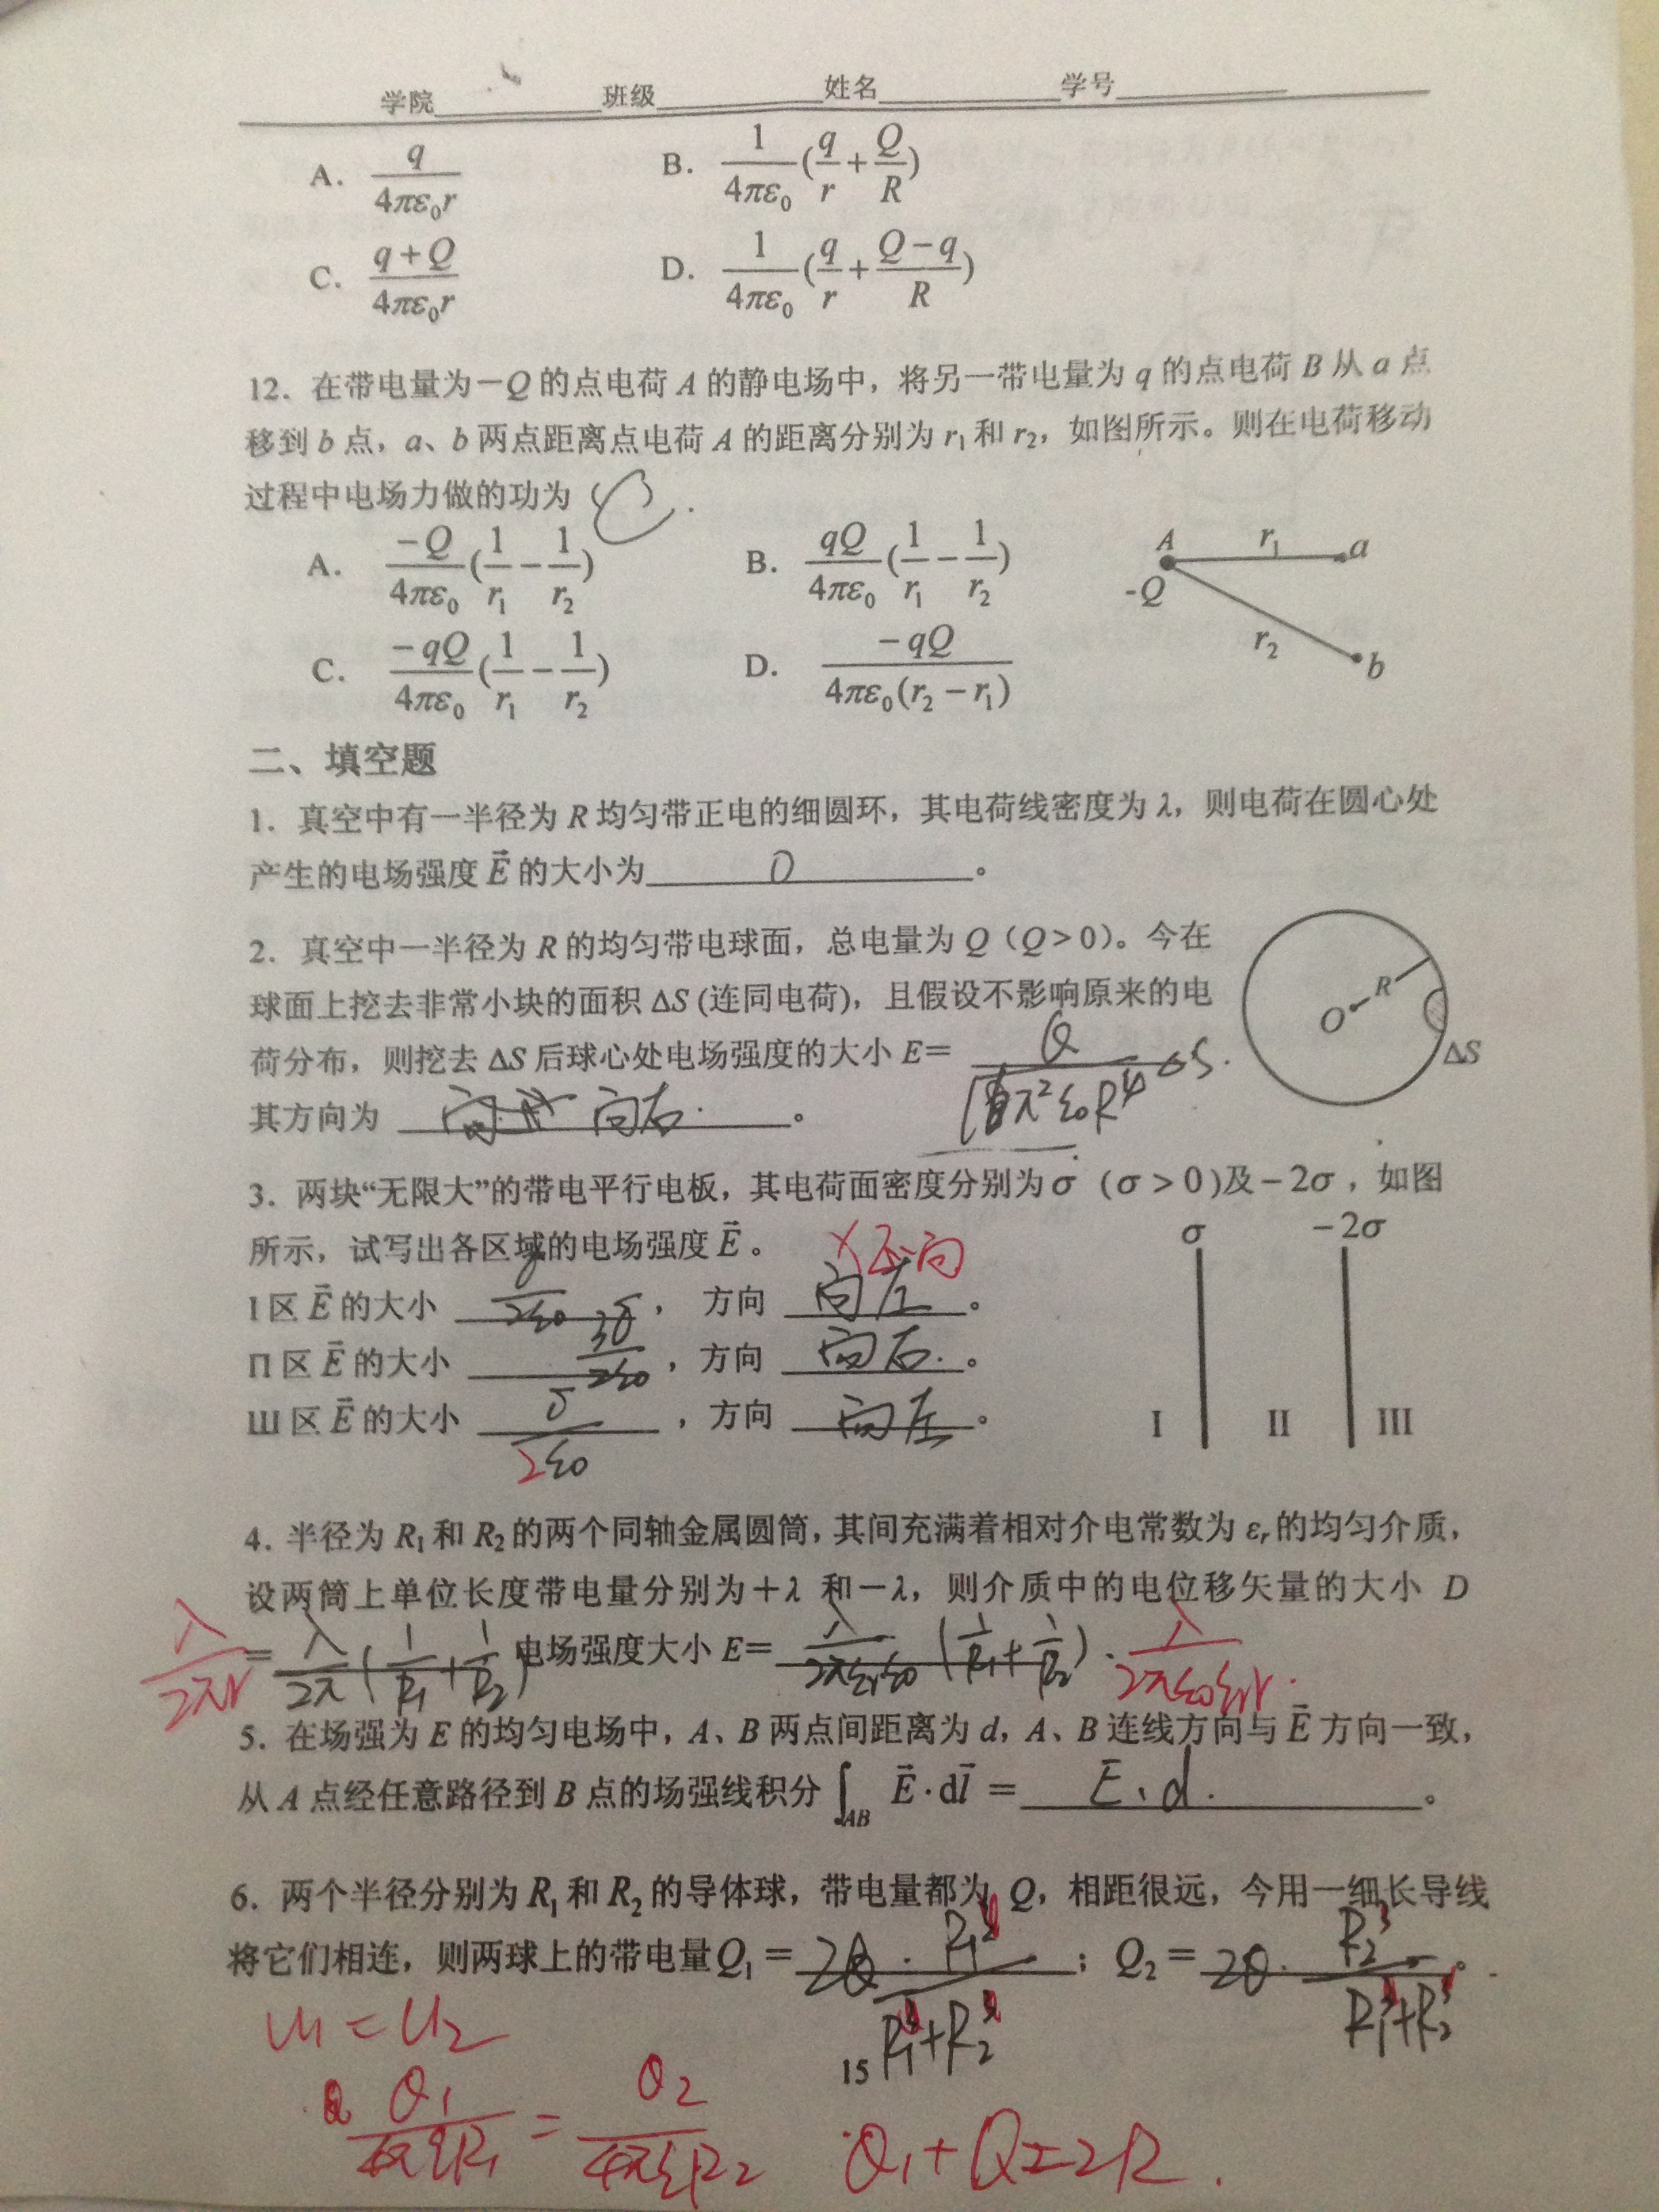 学院 班级 姓名 学号
A. \frac{q}{4πε₀r} B. \frac{1}{4πε₀}(\frac{q}{r}+\frac{Q}{R})
C. \frac{q+Q}{4πε₀r} D. \frac{1}{4πε₀}(\frac{q}{r}+\frac{Q-q}{R})
12. 在带电量为－Q 的点电荷 A 的静电场中，将另一带电量为 q 的点电荷 B 从 a 点
移到 b 点，a、b 两点距离点电荷 A 的距离分别为 r₁ 和 r₂，如图所示。则在电荷移动
过程中电场力做的功为 C.
A. \frac{-Q}{4πε₀}(\frac{1}{r₁}-\frac{1}{r₂}) B. \frac{qQ}{4πε₀}(\frac{1}{r₁}-\frac{1}{r₂})
A r₁ a
-Q
r₂ b
C. \frac{-qQ}{4πε₀}(\frac{1}{r₁}-\frac{1}{r₂}) D. \frac{-qQ}{4πε₀(r₂-r₁)}
二、填空题
1. 真空中有一半径为 R 均匀带正电的细圆环，其电荷线密度为 λ，则电荷在圆心处
产生的电场强度 \vec{E} 的大小为 0 。
2. 真空中一半径为 R 的均匀带电球面，总电量为 Q（Q>0）。今在
球面上挖去非常小块的面积 ΔS (连同电荷)，且假设不影响原来的电
荷分布，则挖去 ΔS 后球心处电场强度的大小 E= \frac{Q}{16π²ε₀R⁴}ΔS.
其方向为 向右. 。
O R
ΔS
3. 两块“无限大”的带电平行电板，其电荷面密度分别为 σ (σ > 0)及－2σ，如图
所示，试写出各区域的电场强度 \vec{E} 。
σ -2σ
I 区 \vec{E} 的大小 \frac{σ}{2ε₀} ， 方向 向左 。
Π 区 \vec{E} 的大小 \frac{3σ}{2ε₀} ，方向 向右. 。
Ш 区 \vec{E} 的大小 \frac{σ}{2ε₀} ，方向 向左 。
I II III
4. 半径为 R₁ 和 R₂ 的两个同轴金属圆筒，其间充满着相对介电常数为 εᵣ 的均匀介质，
设两筒上单位长度带电量分别为＋λ 和－λ，则介质中的电位移矢量的大小 D
\frac{λ}{2πr} = \frac{λ}{2π}(\frac{1}{R₁}+\frac{1}{R₂}) 电场强度大小 E= \frac{λ}{2πεᵣε₀}(\frac{1}{R₁}+\frac{1}{R₂}). \frac{λ}{2πε₀εᵣr}.
5. 在场强为 E 的均匀电场中，A、B 两点间距离为 d，A、B 连线方向与 \vec{E} 方向一致，
从 A 点经任意路径到 B 点的场强线积分 ∫_{AB} \vec{E}·d\vec{l} = E·d. 。
6. 两个半径分别为 R₁ 和 R₂ 的导体球，带电量都为 Q，相距很远，今用一细长导线
将它们相连，则两球上的带电量 Q₁ = 2Q·\frac{R₁}{R₁+R₂} ；Q₂ = 2Q·\frac{R₂}{R₁+R₂} 。
U₁=U₂
15
\frac{Q₁}{4πεR₁} = \frac{Q₂}{4πεR₂} Q₁+Q=2R.